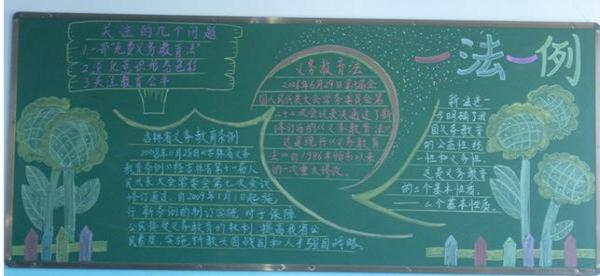 关注的几个问题
1.一部免费义务教育法
3.关注教育公平
义务教育法
2006年6月29日第十届全
国人民代表大会常务委员会第
二十二次会议表决通过了新
修订后的《义务教育法》
这是现行《义务教育
法》自1986年情布以来
的一次重大修改。
一法一例
新法进一
步明确了我
国义务教育
的公益性统
一性和义务性.
这是义务教育
的三个基本性质.
——三个基本性质.
吉林省义务教育条例
2008年11月28日《吉林省义务
教育条例》经吉林省第十一届人
民代表大会常委会第七次会议
修订通过,自2009年1月1日起施
行.新条例的制订实施,对于保障
公民接受义务教育的权利,提高我省公
民素质,实施科教兴国战略和人才强国战略